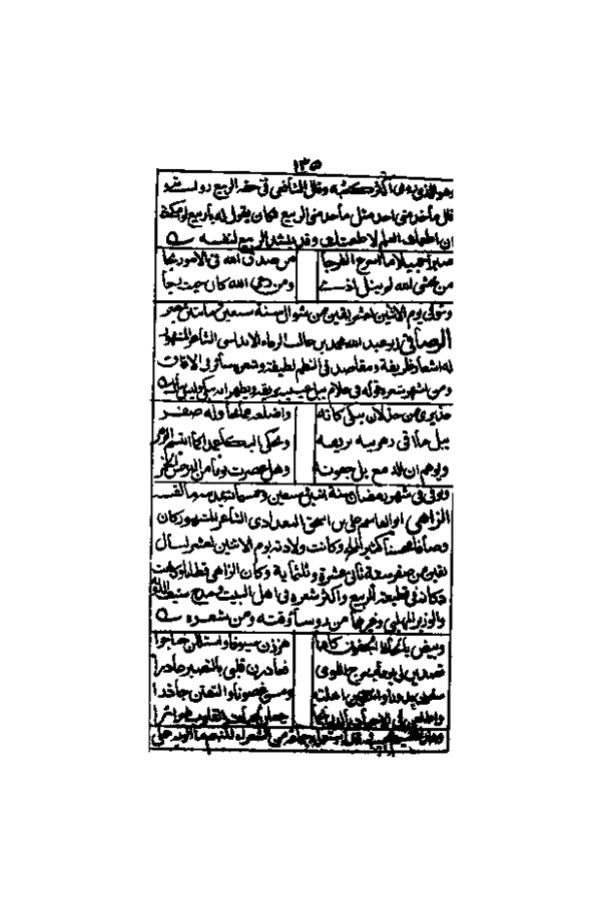 ١٣٥
وهو الذي روى اكثر كتبه وقال الشافعي في حقه الربيع
قال ما خدمني احد مثل ما خدمني الربيع فكان يقول له يا ربيع لو
ان اطعمك العلم لاطعمتك وقد ينشد الربيع لنفسه
صبرا جميلا ما اسرع الفرجا من صدق الله في الامور نجا
من خشي الله لم ينله اذى ومن رجى الله كان حيث رجا
وتوفى يوم الاثنين لعشر بقين من شوال سنة سبعين ومائتين
الرصافي ابو عبد الله محمد بن غالب الاندلسي الشاعر المشهور
له اشعار ظريفة ومقاصد في النظم لطيفة وشعره سائر في الافاق
ومن اشهرت قوله في غلام يبل عينيه بريقه ويظهر انه يبكي وليس
عذيري من جذلان يبكي كآبة واضلعه مما
يبل مآقي بريقه ويحكي البكا عمدا كما ابتسم الزهر
ويوهم ان الدمع بل جفونه وهل عصرت يوما من النرجس الخمر
وتوفى في شهر رمضان سنة اثنين سبعين وخمسمائة
الزاهي ابو القاسم علي بن اسحق البغدادي الشاعر المشهور كان
وصافا محسنا كثير الملح وكانت ولادته يوم الاثنين لعشر ليال
بقين من صفر سنة ثماني عشرة وثلثماية وكان الزاهي قطانا وكانت
دكانه في قطيعة الربيع واكثر شعره في اهل البيت ومدح سيف الدولة
والوزير المهلبي وغيرهما من رؤسا وقته ومن شعره
وبيض بالحاظ العيون كانما هززن سيوفا واستللن خناجرا
تصدين لي يوما بمنعرج اللوى فغادرن قلبي بالتصبر غادرا
سفرن بدورا وانتقبن اهلة ومسن غصونا والتفتن جاذرا
واطلعن في الاجياد بالدر انجما جعلن لحبات القلوب ضرائرا